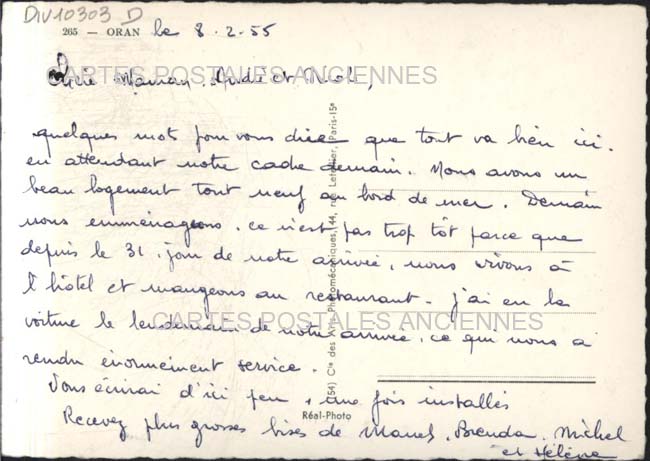 DIV10303 D
265 — ORAN le 8.2.55
Chère Maman, André et
CARTES POSTALES ANCIENNES
quelques mot pour vous dire que tout va bien ici.
en attendant notre cadre demain. Nous avons un
beau logement tout neuf au bord de mer. Demain
nous emménageons, ce n'est pas trop tôt parce que
depuis le 31, jour de notre arrivée, nous vivons à
l'hôtel et mangeons au restaurant. j'ai eu la
voiture le lendemain de notre arrivée, ce qui nous a
CARTES POSTALES ANCIENNES
rendu énormément service.
Vous écrirai d'ici peu, une fois installés
Recevez plus grosses bises de Manel, Brenda, Michel
et Hélène
Réal-Photo
(54) Cie des Arts Photomécaniques, 44, rue Letellier, Paris-15e